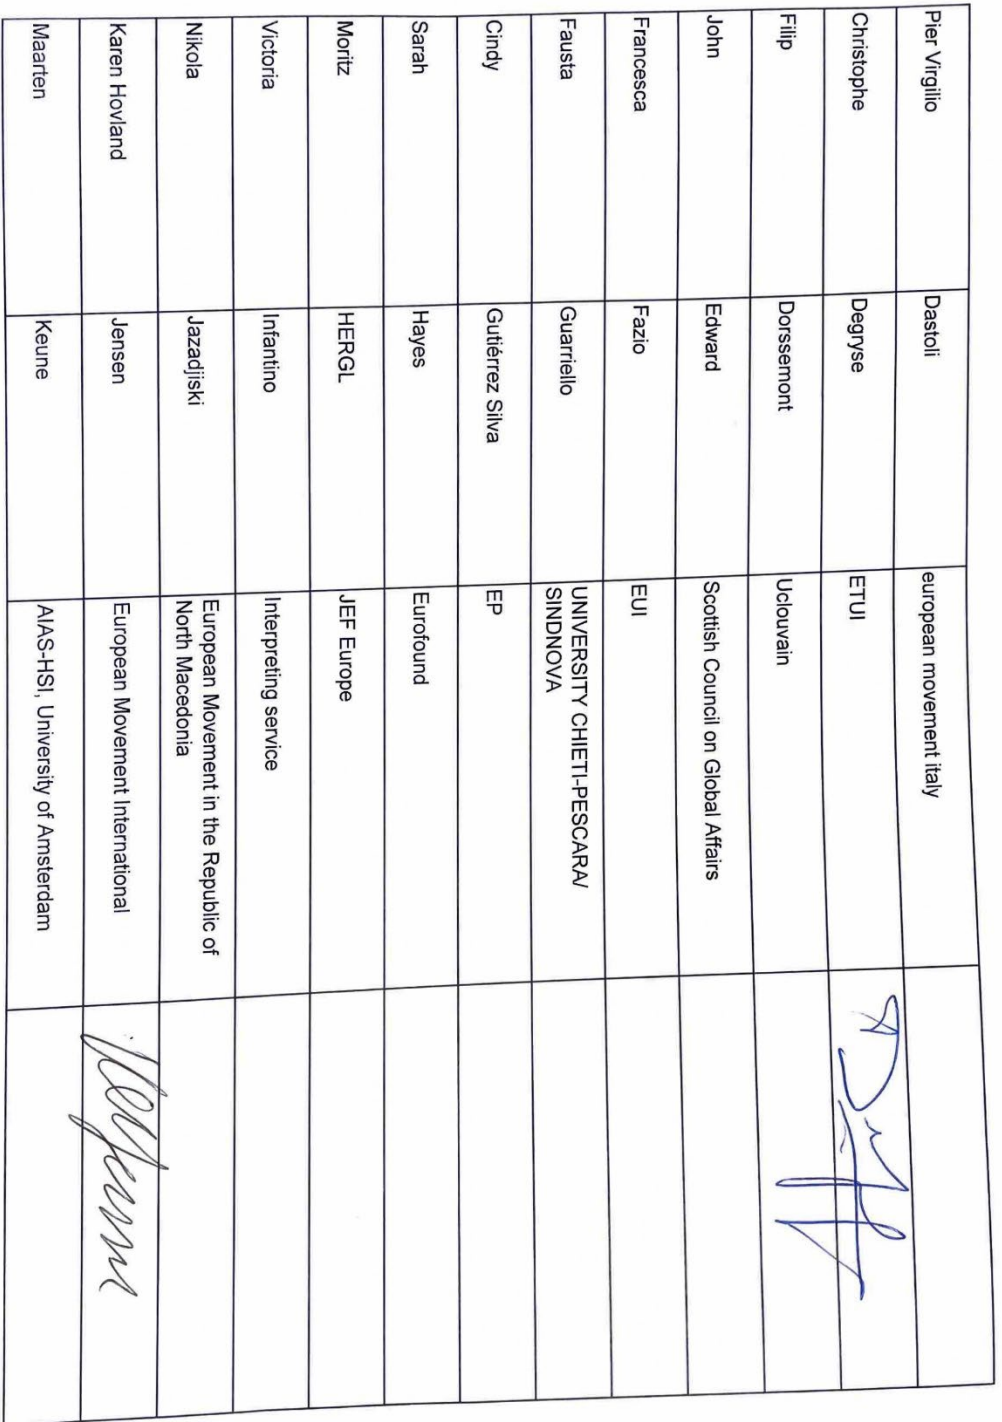 Pier Virgilio Dastoli european movement italy
Christophe Degryse ETUI
Filip Dorssemont Uclouvain
John Edward Scottish Council on Global Affairs
Francesca Fazio EUI
Fausta Guarriello UNIVERSITY CHIETI-PESCARA/
SINDNOVA
Cindy Gutiérrez Silva EP
Sarah Hayes Eurofound
Moritz HERGL JEF Europe
Victoria Infantino Interpreting service
Nikola Jazadjiski European Movement in the Republic of
North Macedonia
Karen Hovland Jensen European Movement International
Maarten Keune AIAS-HSI, University of Amsterdam